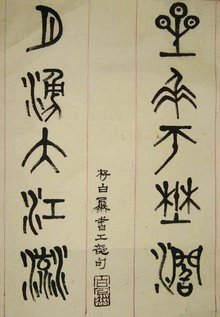 星垂平野闊
月湧大江流
白書工部句